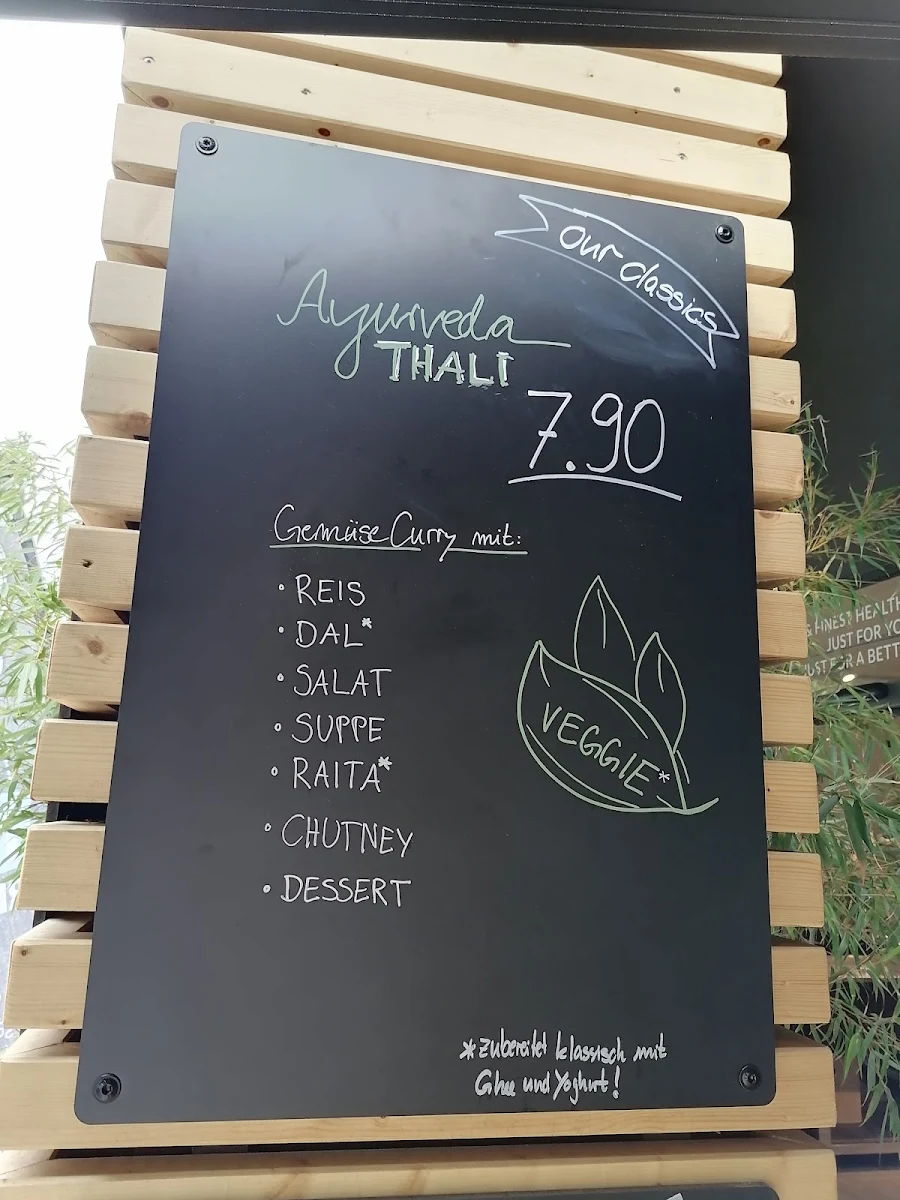 our classics
Ayurveda
THALI
7.90
Gemüse Curry mit:
• REIS
• DAL*
• SALAT
• SUPPE
• RAITA*
• CHUTNEY
• DESSERT
VEGGIE*
*zubereitet klassisch mit
Ghee und Yoghurt!
& FINEST HEALTH
JUST FOR YO
JUST FOR A BETT